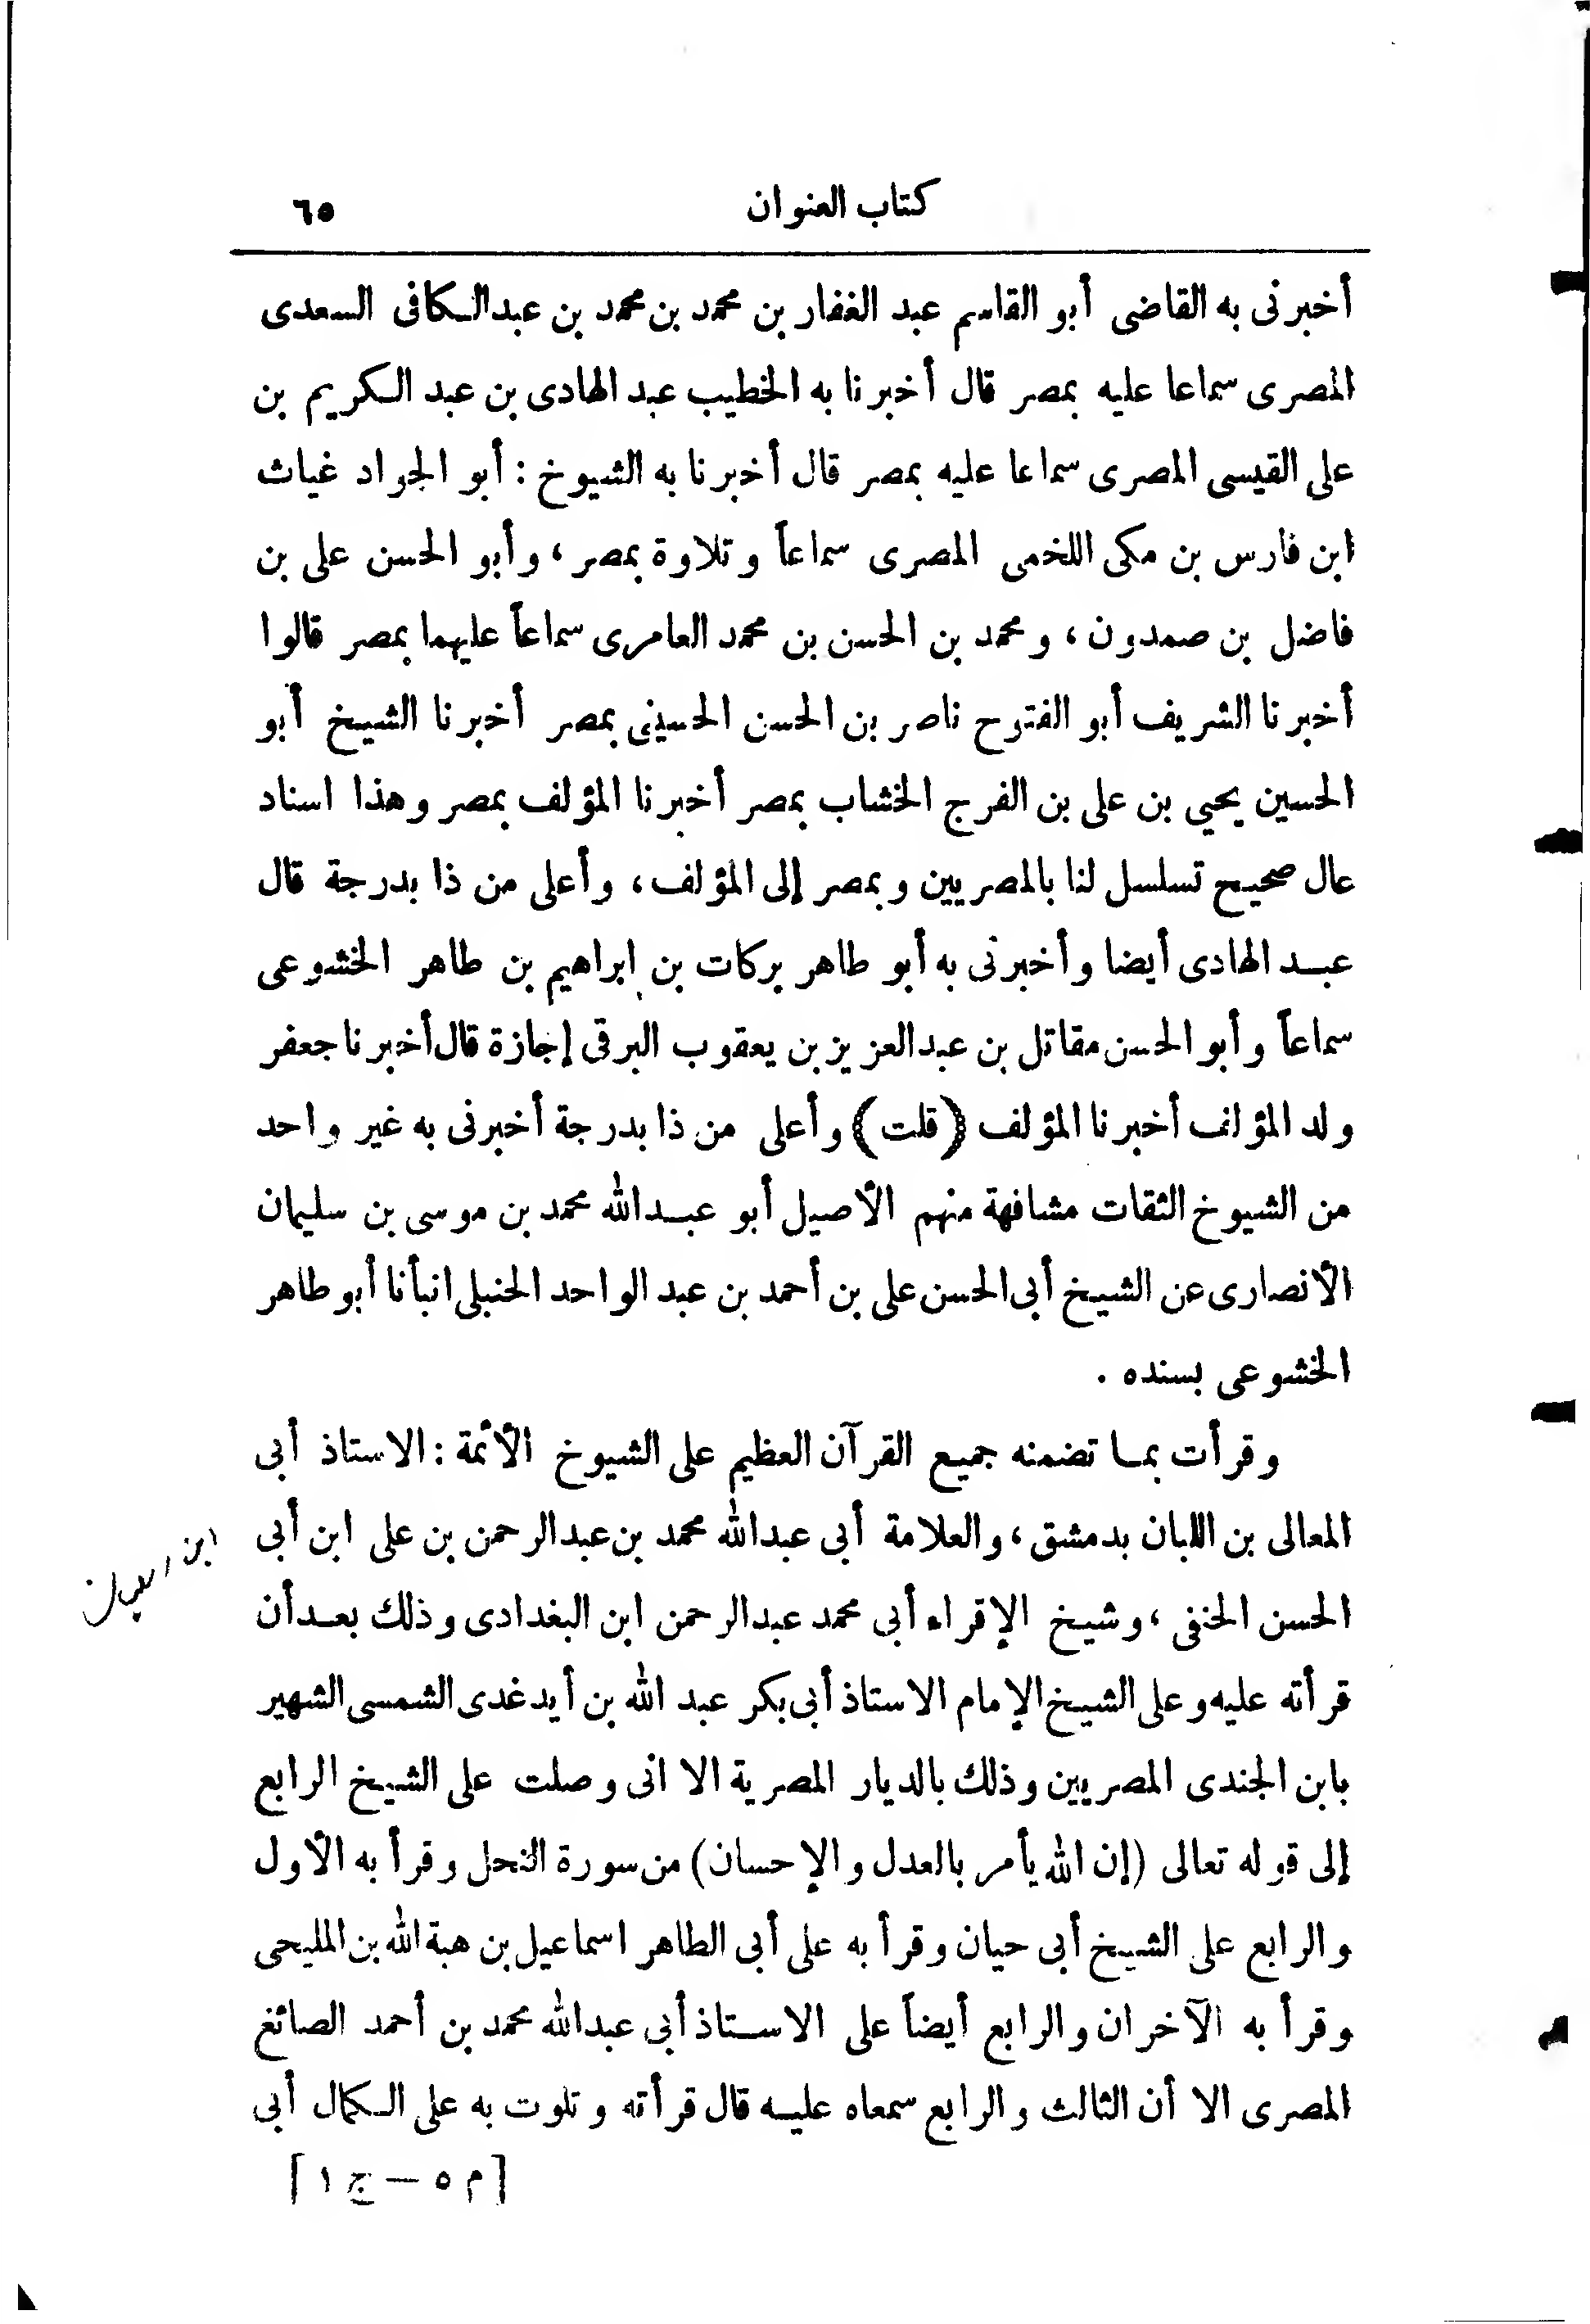 كتاب العنوان ٦٥
أخبرنى به القاضى أبو القاسم عبد الغفار بن محمد بن محمد بن عبد الكافى السعدى
المصرى سماعا عليه بمصر قال أخبرنا به الخطيب عبد الهادى بن عبد الكريم بن
على القيسى المصرى سماعا عليه بمصر قال أخبرنا به الشيوخ : أبو الجواد غياث
ابن فارس بن مكى اللخمى المصرى سماعاً وتلاوة بمصر ، وأبو الحسن على بن
فاضل بن صمدون ، ومحمد بن الحسن بن محمد العامرى سماعاً عليهما بمصر قالوا
أخبرنا الشريف أبو الفتوح ناصر بن الحسن الحسينى بمصر أخبرنا الشيخ أبو
الحسين يحيي بن على بن الفرج الخشاب بمصر أخبرنا المؤلف بمصر وهذا اسناد
عال صحيح تسلسل لنا بالمصريين وبمصر إلى المؤلف ، وأعلى من ذا بدرجة قال
عبد الهادى أيضا وأخبرنى به أبو طاهر بركات بن إبراهيم بن طاهر الخشوعى
سماعاً وأبو الحسن مقاتل بن عبدالعزيز بن يعقوب البرقى إجازة قال أخبرنا جعفر
ولد المؤلف أخبرنا المؤلف (قلت) وأعلى من ذا بدرجة أخبرنى به غير واحد
من الشيوخ الثقات مشافهة منهم الأصيل أبو عبدالله محمد بن موسى بن سليمان
الأنصارى عن الشيخ أبى الحسن على بن أحمد بن عبد الواحد الحنبلى انبأنا أبو طاهر
الخشوعى بسنده .
وقرأت بما تضمنه جميع القرآن العظيم على الشيوخ الأئمة : الاستاذ أبى
المعالى بن اللبان بدمشق ، والعلامة أبى عبدالله محمد بن عبدالرحمن بن على ابن أبى
الحسن الحنفى ، وشيخ الإقراء أبى محمد عبدالرحمن ابن البغدادى وذلك بعد أن
قرأته عليه وعلى الشيخ الإمام الاستاذ أبى بكر عبد الله بن أيدغدى الشمسى الشهير
بابن الجندى المصريين وذلك بالديار المصرية الا انى وصلت على الشيخ الرابع
إلى قوله تعالى (إن الله يأمر بالعدل والإحسان) من سورة النحل وقرأ به الأول
والرابع على الشيخ أبى حيان وقرأ به على أبى الطاهر اسماعيل بن هبة الله بن المليحى
وقرأ به الآخران والرابع أيضاً على الاستاذ أبى عبدالله محمد بن أحمد الصائغ
المصرى الا أن الثالث والرابع سمعاه عليه قال قرأته وتلوت به على الكمال أبى
[م ٥ – ج ١]
ابن